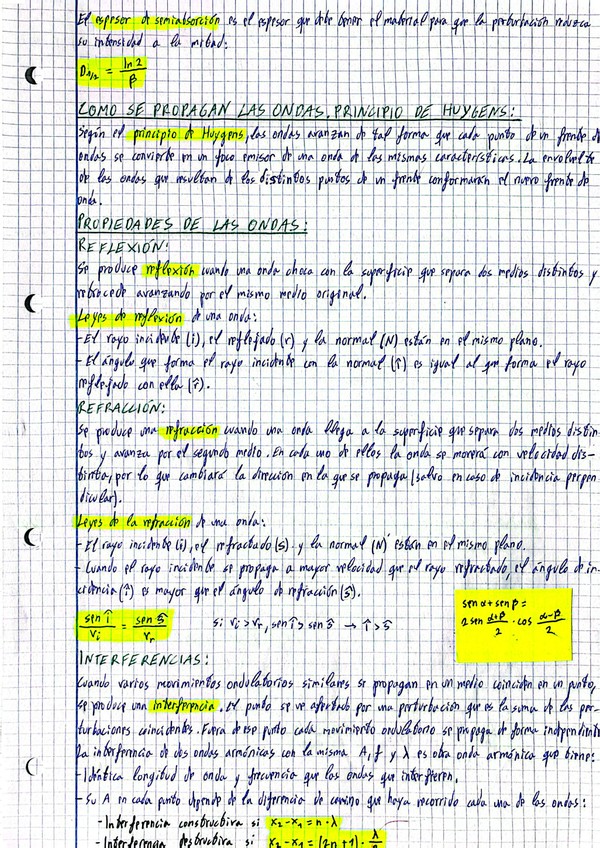 El espesor de semiabsorción es el espesor que debe tener el material para que la perturbación reduzca
su intensidad a la mitad:
D₁/₂ = ln 2 / β
COMO SE PROPAGAN LAS ONDAS. PRINCIPIO DE HUYGENS:
Según el principio de Huygens, las ondas avanzan de tal forma que cada punto de un frente de
ondas se convierte en un foco emisor de una onda de las mismas características. La envolvente
de las ondas que resultan de los distintos puntos de un frente conformarán el nuevo frente de
onda.
PROPIEDADES DE LAS ONDAS:
REFLEXIÓN:
Se produce reflexión cuando una onda choca con la superficie que separa dos medios distintos y
retrocede avanzando por el mismo medio original.
Leyes de reflexión de una onda:
- El rayo incidente (i), el reflejado (r) y la normal (N) están en el mismo plano.
- El ángulo que forma el rayo incidente con la normal (î) es igual al que forma el rayo
reflejado con ella (r̂).
REFRACCIÓN:
Se produce una refracción cuando una onda llega a la superficie que separa dos medios distin-
tos y avanza por el segundo medio. En cada uno de ellos la onda se moverá con velocidad dis-
tinta, por lo que cambiará la dirección en la que se propaga (salvo en caso de incidencia perpen
dicular).
Leyes de la refracción de una onda:
- El rayo incidente (i), el refractado (s) y la normal (N) están en el mismo plano.
- Cuando el rayo incidente se propaga a mayor velocidad que el rayo refractado, el ángulo de in-
cidencia (î) es mayor que el ángulo de refracción (ŝ).
sen î / vᵢ = sen ŝ / vᵣ si vᵢ > vᵣ, sen î > sen ŝ → î > ŝ
sen α + sen β =
2 sen α+β / 2 · cos α-β / 2
INTERFERENCIAS:
Cuando varios movimientos ondulatorios similares se propagan en un medio coinciden en un punto,
se produce una interferencia. El punto se ve afectado por una perturbación que es la suma de las per-
turbaciones coincidentes. Fuera de ese punto cada movimiento ondulatorio se propaga de forma independiente
La interferencia de dos ondas armónicas con la misma A, f y λ es otra onda armónica que tiene:
- Idéntica longitud de onda y frecuencia que las ondas que interfieren.
- Su A en cada punto depende de la diferencia de camino que haya recorrido cada una de las ondas:
- Interferencia constructiva si x₂ - x₁ = n · λ
- Interferencia destructiva si x₂ - x₁ = (2n + 1) · λ